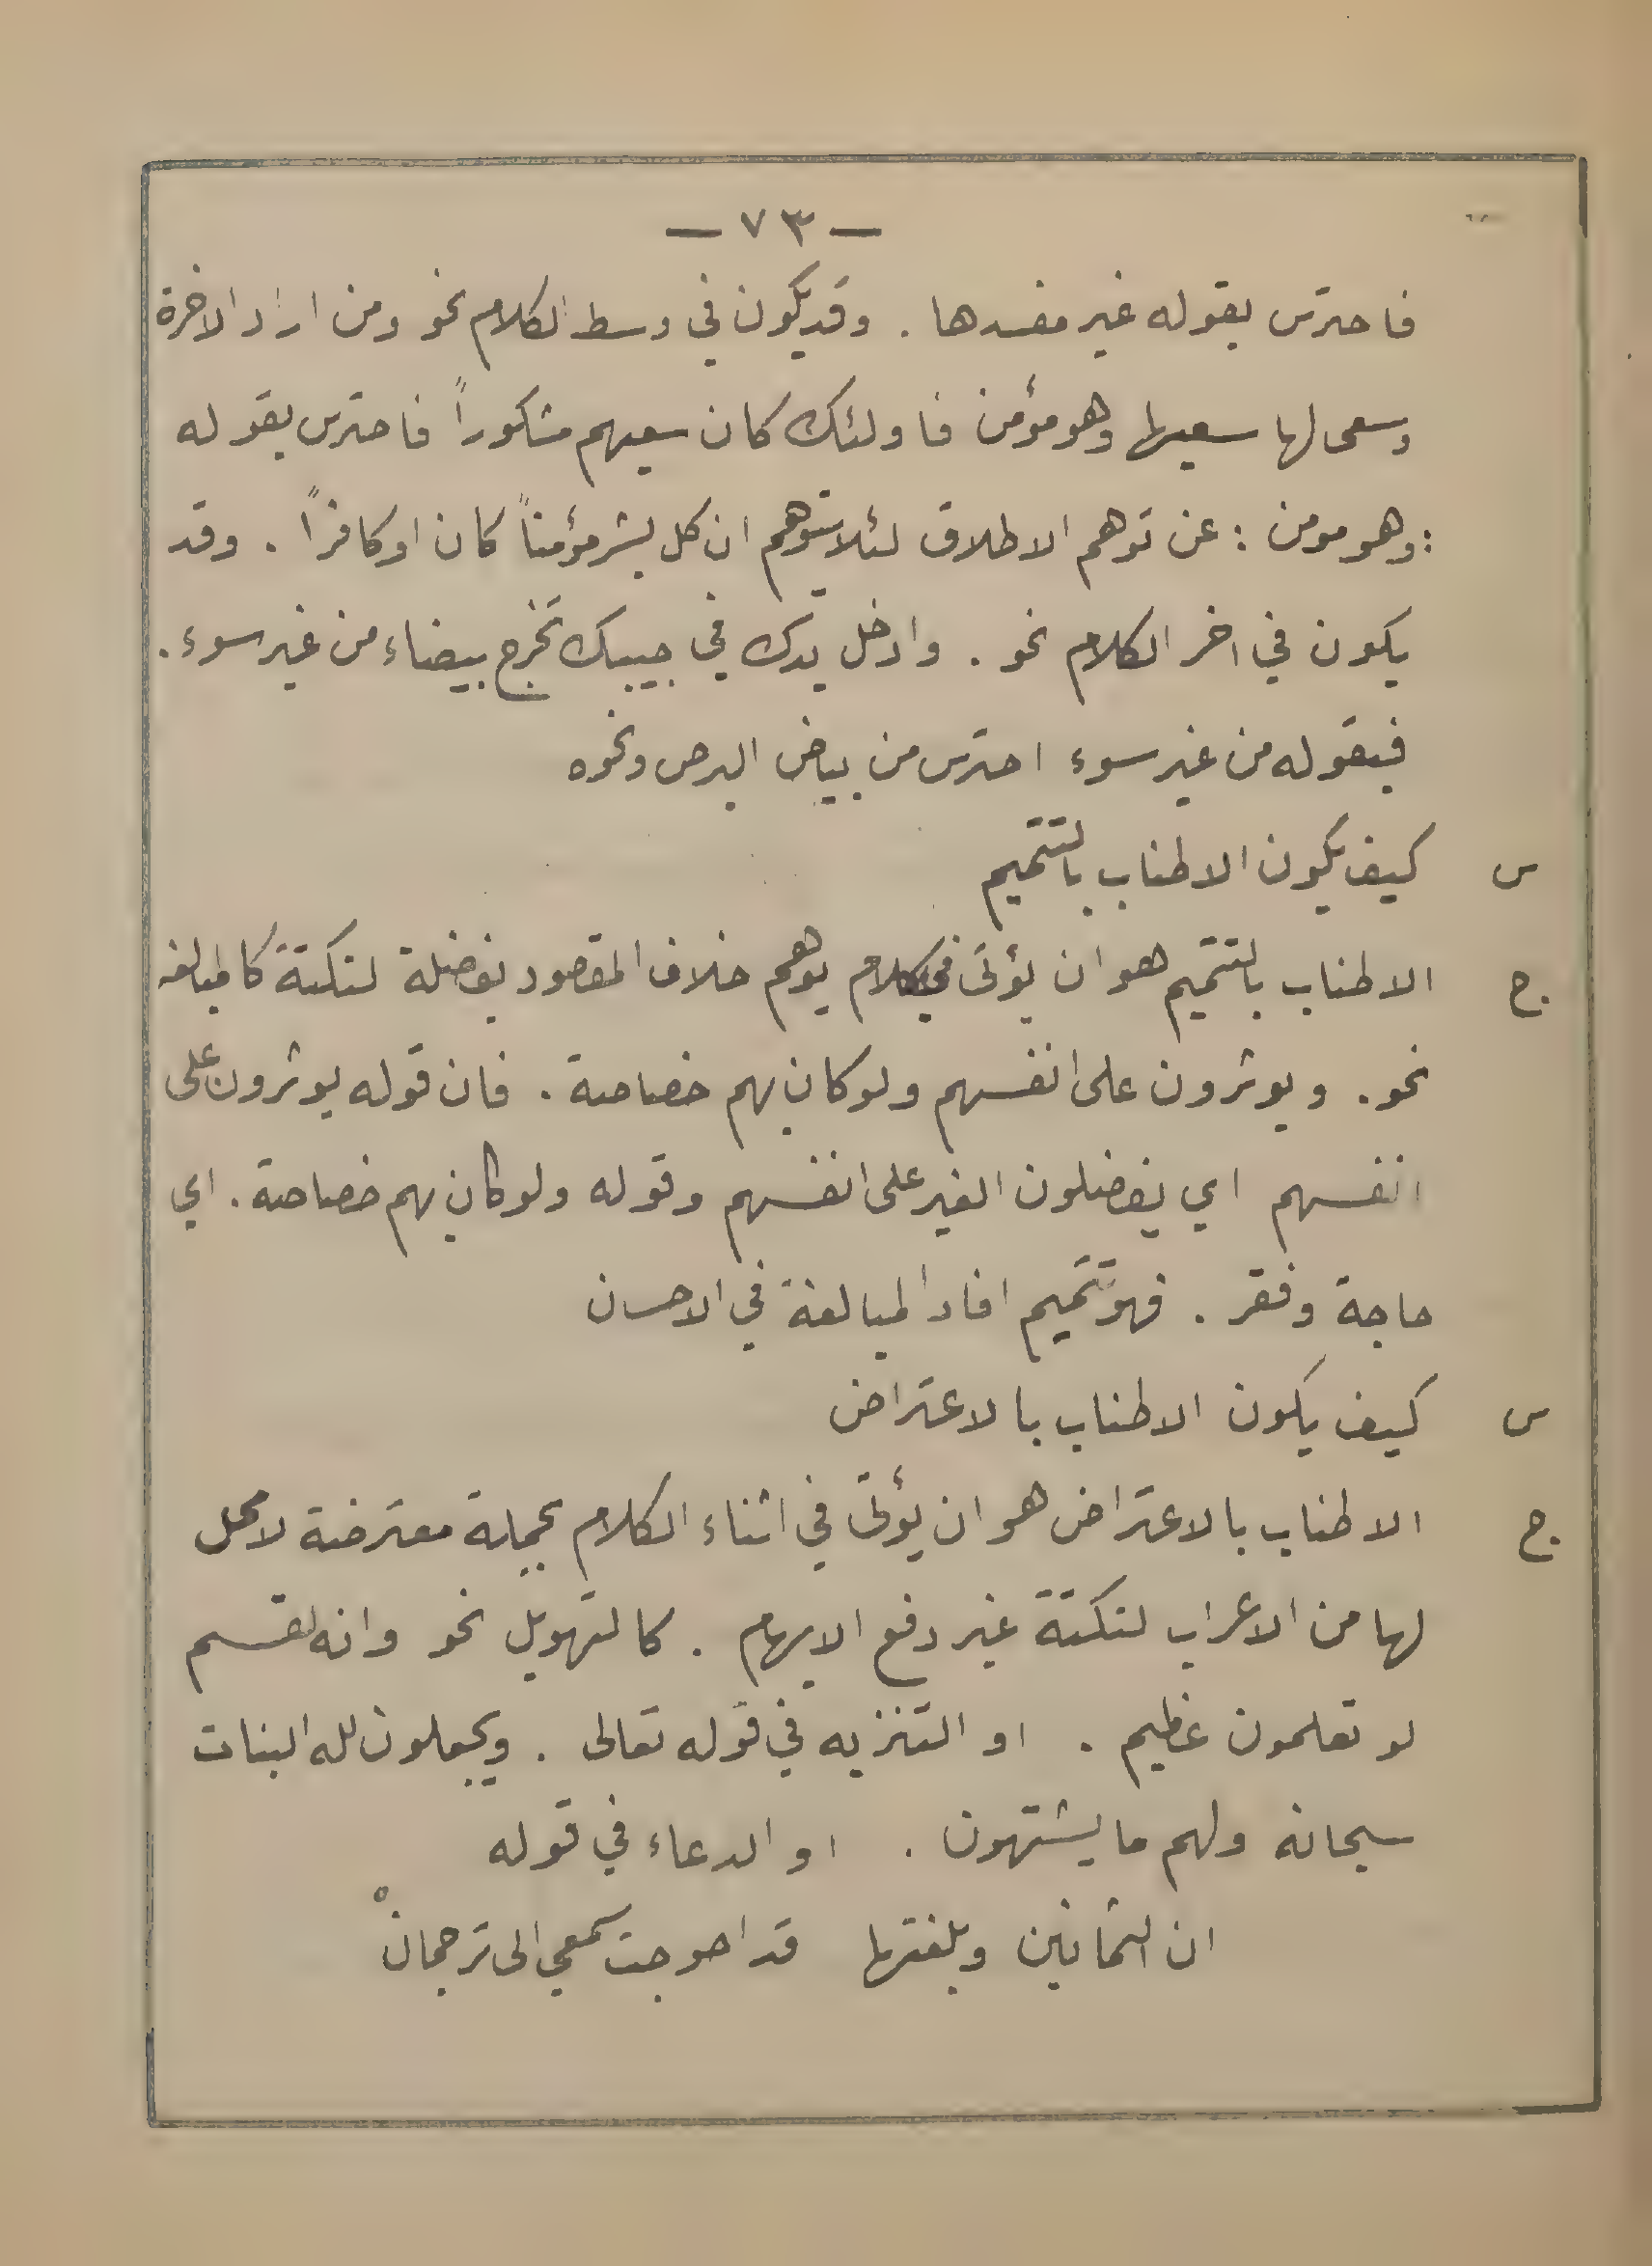 — ٧٣ —
فاحترس بقوله غير مفسدها . وقد يكون في وسط الكلام نحو ومن اراد الاخرة
وسعى لها سعيها وهو مؤمن فاولئك كان سعيهم مشكوراً فاحترس بقوله
: وهو مومن : عن توهم الاطلاق لئلا يتوهم ان كل بشر مؤمناً كان او كافراً . وقد
يكون في اخر الكلام نحو . وادخل يدك في جيبك تخرج بيضاء من غير سوء .
فبقوله من غير سوء احترس من بياض البرص ونحوه
س كيف يكون الاطناب بالتتميم
ج. الاطناب بالتتميم هو ان يؤتى في كلام يوهم خلاف المقصود بفضلة لنكتة كالمبالغه
نحو . ويوثرون على انفسهم ولو كان بهم خصاصة . فان قوله يوثرون على
انفسهم اي يفضلون الغير على انفسهم وقوله ولو كان بهم خصاصة . اي
حاجة وفقر . فهو تتميم افاد المبالغة في الاحسان
س كيف يكون الاطناب بالاعتراض
ج. الاطناب بالاعتراض هو ان يؤتى في اثناء الكلام بجملة معترضة لا محل
لها من الاعراب لنكتة غير دفع الايهام . كالتهويل نحو وانه لقسم
لو تعلمون عظيم . او التنزيه في قوله تعالى . ويجعلون لله البنات
سبحانه ولهم ما يشتهون . او الدعاء في قوله
ان الثمانين وبلغتها قد احوجت سمعي الى ترجمانْ